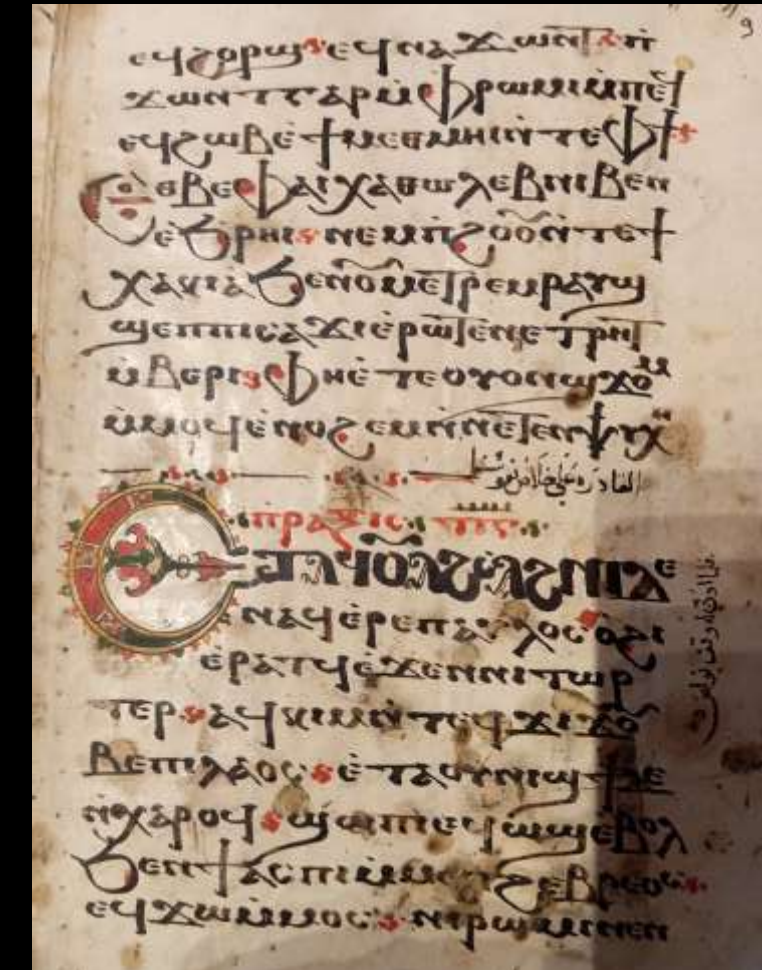 ⲉϥϩⲟⲣϣ ⲉϥⲛⲁϫⲱⲛⲧ ⲡ̀
ϫⲱⲛⲧ ⲅⲁⲣ ⲙ̀ⲫⲣⲱⲙⲓ ⲙ̀ⲡⲉϥ
ⲉⲣϩⲱⲃ ⲉ̀ϯⲙⲉⲑⲙⲏⲓ ⲛ̀ⲧⲉⲫϯ
ⲉⲑⲃⲉⲫⲁⲓ ⲭⲁⲑⲱⲗⲉⲃ ⲛⲓⲃⲉⲛ
ⲉ̀ϧⲣⲏⲓ ⲛⲉⲙ ⲡ̀ϩⲟⲩⲟ̀ ⲛ̀ⲧⲉϯ
ⲕⲁⲕⲓⲁ̀ ϧⲉⲛ ⲟⲩⲙⲉⲧⲣⲉⲙⲣⲁⲩϣ
ϣⲉⲡ ⲡⲓⲥⲁϫⲓ ⲉ̀ⲣⲱⲧⲉⲛ ⲉⲧⲣⲏⲧ
ⲙ̀ⲃⲉⲣⲓ ⲫⲏ ⲉ̀ⲧⲉ ⲟⲩⲟⲛ ϣϫⲟⲙ
ⲙ̀ⲙⲟϥ ⲉ̀ⲛⲟϩⲉⲙ ⲛ̀ⲛⲉⲧⲉⲛⲯⲩⲭⲏ
القادر على خلاص نفوسكم
ⲡⲣⲁⲝⲓⲥ
ⲉⲧⲁϥⲟⲩⲁϩⲥⲁϩⲛⲓ ⲇⲉ
ⲛⲁϥ ⲉ̀ⲣⲉ ⲡⲁⲩⲗⲟⲥ ⲟ̀ϩⲓ
ⲉ̀ⲣⲁⲧϥ ⲉ̀ϫⲉⲛ ⲛⲓⲧⲱⲣ
ⲧⲉⲣ ⲁϥⲕⲓⲙ ⲛ̀ⲧⲉϥϫⲓϫ ⲟⲩ
ⲃⲉ ⲡⲓⲗⲁⲟⲥ ⲉ̀ⲧⲁⲟⲩⲛⲓϣϯ ⲇⲉ
ⲛ̀ⲭⲁⲣⲟϥ ϣⲱⲡⲓ ⲉϥⲱϣ ⲉ̀ⲃⲟⲗ
ϧⲉⲛ ϯⲁⲥⲡⲓ ⲙ̀ⲙⲉⲧϩⲉⲃⲣⲉⲟⲥ
ⲉϥϫⲱⲙ̀ⲙⲟⲥ ⲛⲓⲣⲱⲙⲓ ⲛⲉⲛ